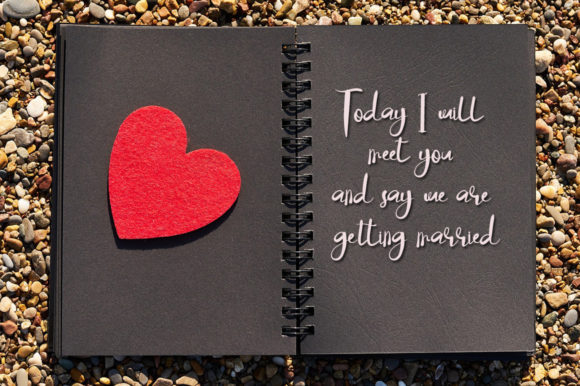 Today I will
meet you
and say we are
getting married